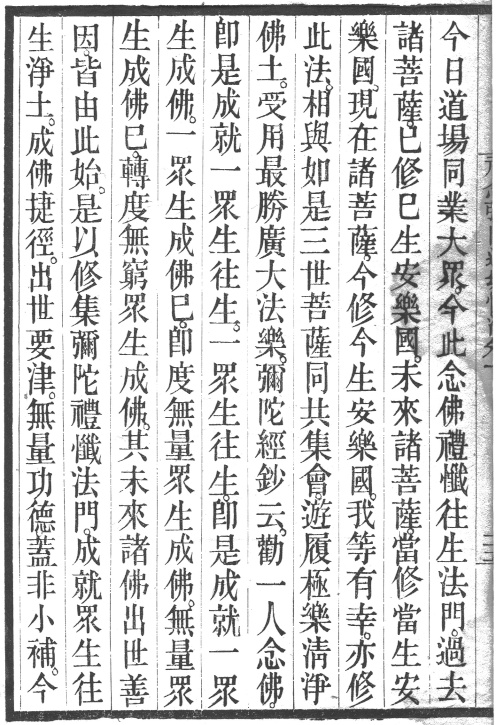 今日道場同業大眾。今此念佛禮懺往生法門。過去
諸菩薩。已修已生安樂國。未來諸菩薩。當修當生安
樂國。現在諸菩薩。今修今生安樂國。我等有幸。亦修
此法。相與如是三世菩薩同共集會。遊履極樂清淨
佛土。受用最勝廣大法樂。彌陀經鈔云。勸一人念佛。
卽是成就一眾生往生。一眾生往生。卽是成就一眾
生成佛。一眾生成佛已。卽度無量眾生成佛。無量眾
生成佛已。轉度無窮眾生成佛。其未來諸佛出世善
因。皆由此始。是以修集彌陀禮懺法門。成就眾生往
生淨土。成佛捷徑。出世要津。無量功德蓋非小補。今